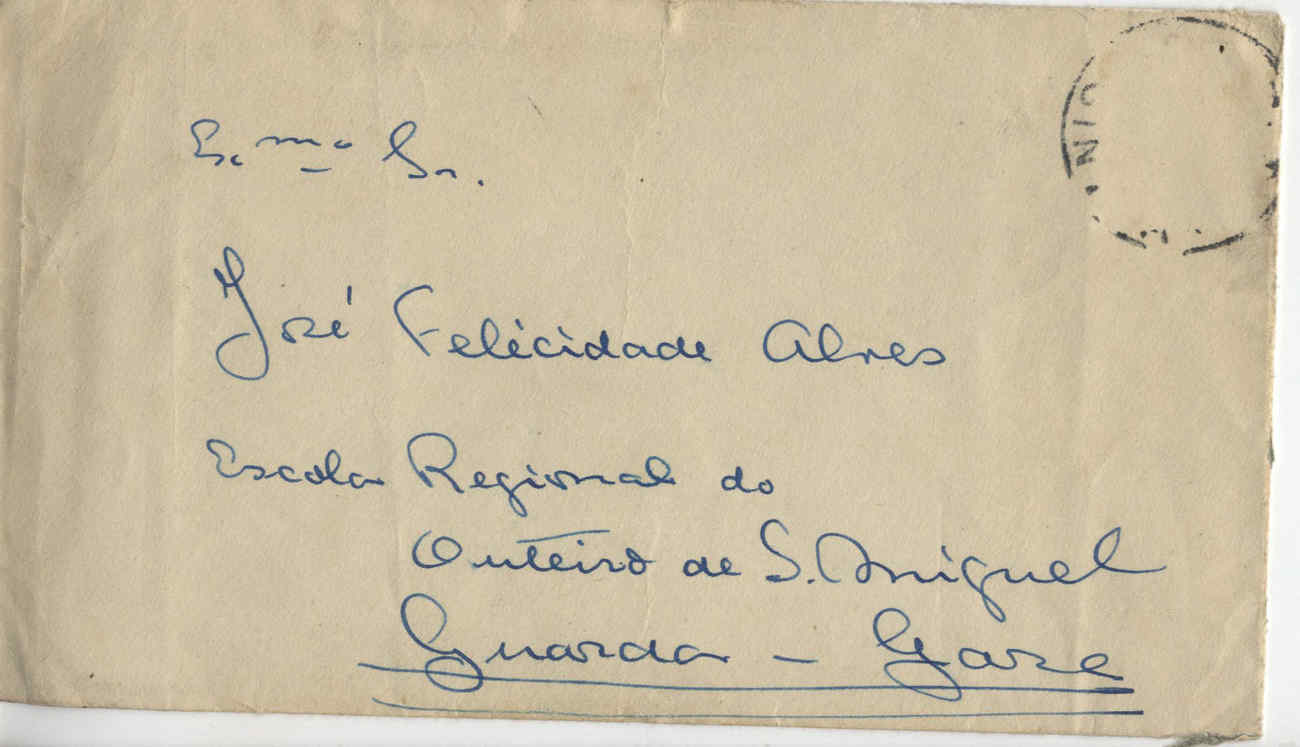 Ex.mo Sr.
José Felicidade Alves
Escola Regional do
Outeiro de S. Miguel
Guarda - Gare